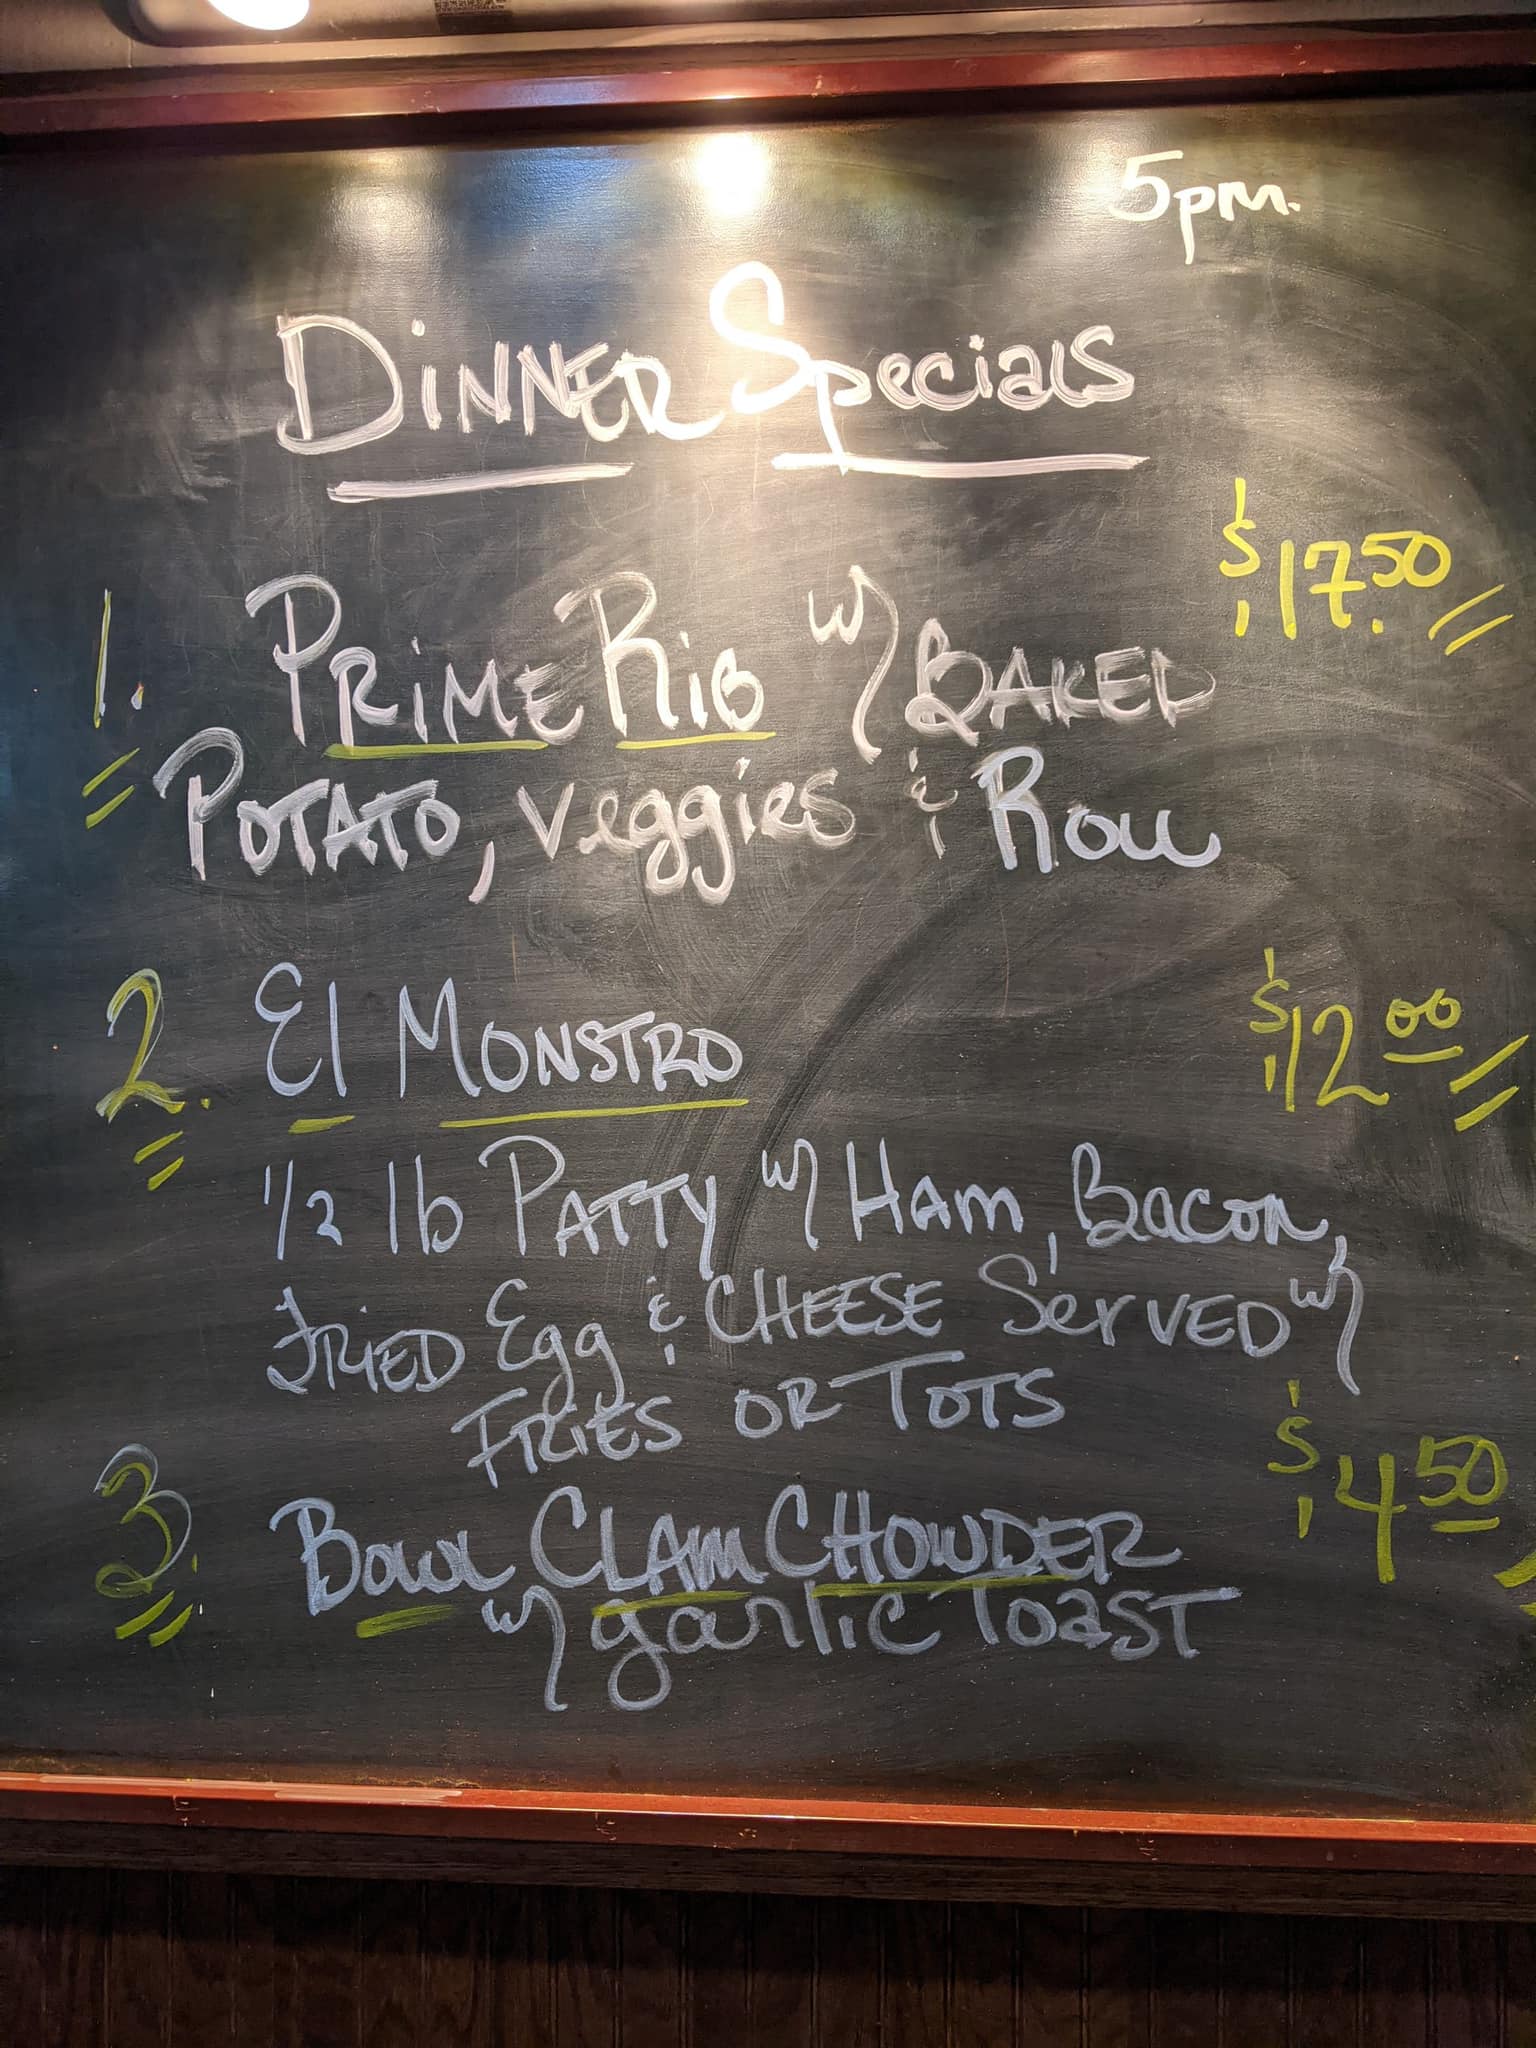 5pm.
Dinner Specials
$17.50
1. Prime Rib w/ Baked
Potato, Veggies & Roll
2. El Monstro $12.00
1/2 lb Patty w/ Ham, Bacon,
Fried Egg & Cheese Served w/
Fries or Tots
3. Bowl Clam Chowder $4.50
w/ garlic Toast